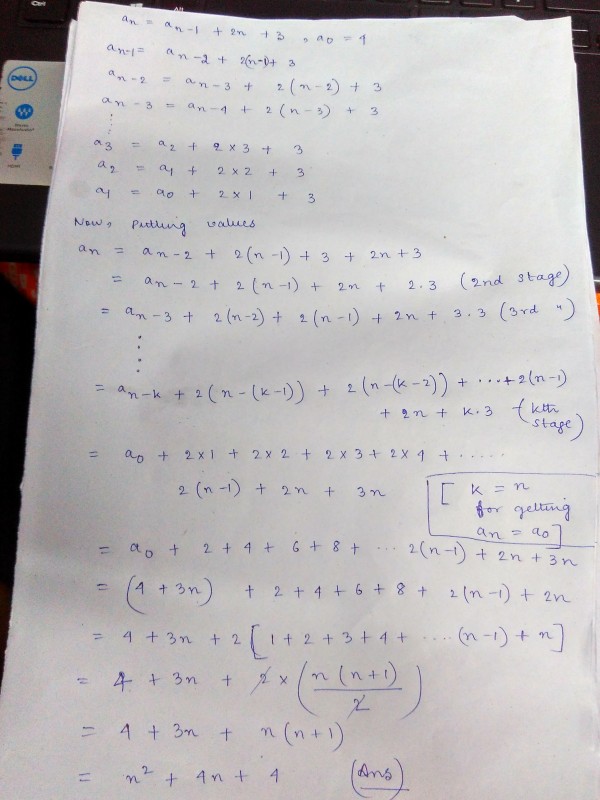 Ctrl
DELL
an = an-1 + 2n + 3 , a0 = 4
an-1 = an-2 + 2(n-1) + 3
an-2 = an-3 + 2(n-2) + 3
an-3 = an-4 + 2(n-3) + 3
⋮
a3 = a2 + 2×3 + 3
a2 = a1 + 2×2 + 3
a1 = a0 + 2×1 + 3
Now, putting values
an = an-2 + 2(n-1) + 3 + 2n+3
= an-2 + 2(n-1) + 2n + 2.3 (2nd stage)
= an-3 + 2(n-2) + 2(n-1) + 2n + 3.3 (3rd ")
⋮
= an-k + 2(n-(k-1)) + 2(n-(k-2)) + ....+ 2(n-1)
+ 2n + k.3 (kth
stage)
= a0 + 2×1 + 2×2 + 2×3 + 2×4 + .....
2(n-1) + 2n + 3n
[ k = n
for getting
an = a0 ]
= a0 + 2 + 4 + 6 + 8 + ... 2(n-1) + 2n + 3n
= (4 + 3n) + 2 + 4 + 6 + 8 + 2(n-1) + 2n
= 4 + 3n + 2[1 + 2 + 3 + 4 + .... (n-1) + n]
= 4 + 3n + 2 × (n(n+1)/2)
= 4 + 3n + n(n+1)
= n² + 4n + 4 (Ans)